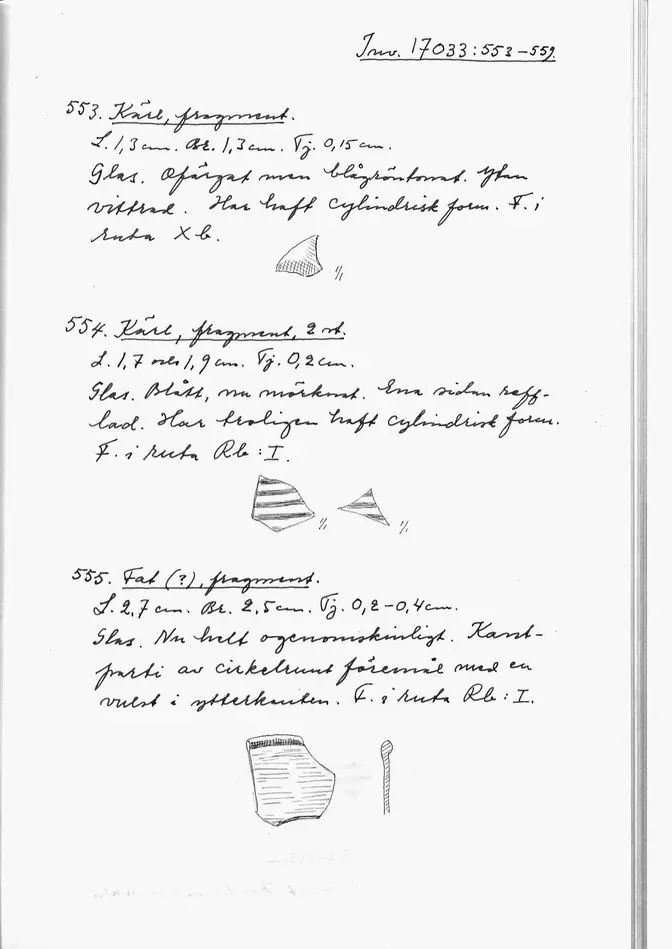 Inv. 17033:553–559.
553. Kärl, fragment.
L. 1,3 cm. Br. 1,3 cm. Tj. 0,15 cm.
Glas. Ofärgat men blågröntonat. Ytan
vittrad. Har haft cylindrisk form. F. i
ruta X b.
1/1
554. Kärl, fragment, 2 st.
L. 1,7 och 1,9 cm. Tj. 0,2 cm.
Glas. Blått, nu mörknat. Ena sidan reff-
lad. Har troligen haft cylindrisk form.
F. i ruta Rb : I.
1/1 1/1
555. Fat (?), fragment.
L. 2,7 cm. Br. 2,5 cm. Tj. 0,2–0,4 cm.
Glas. Nu helt ogenomskinligt. Kant-
parti av cirkelrunt föremål med en
vulst i ytterkanten. F. i ruta Rb : I.